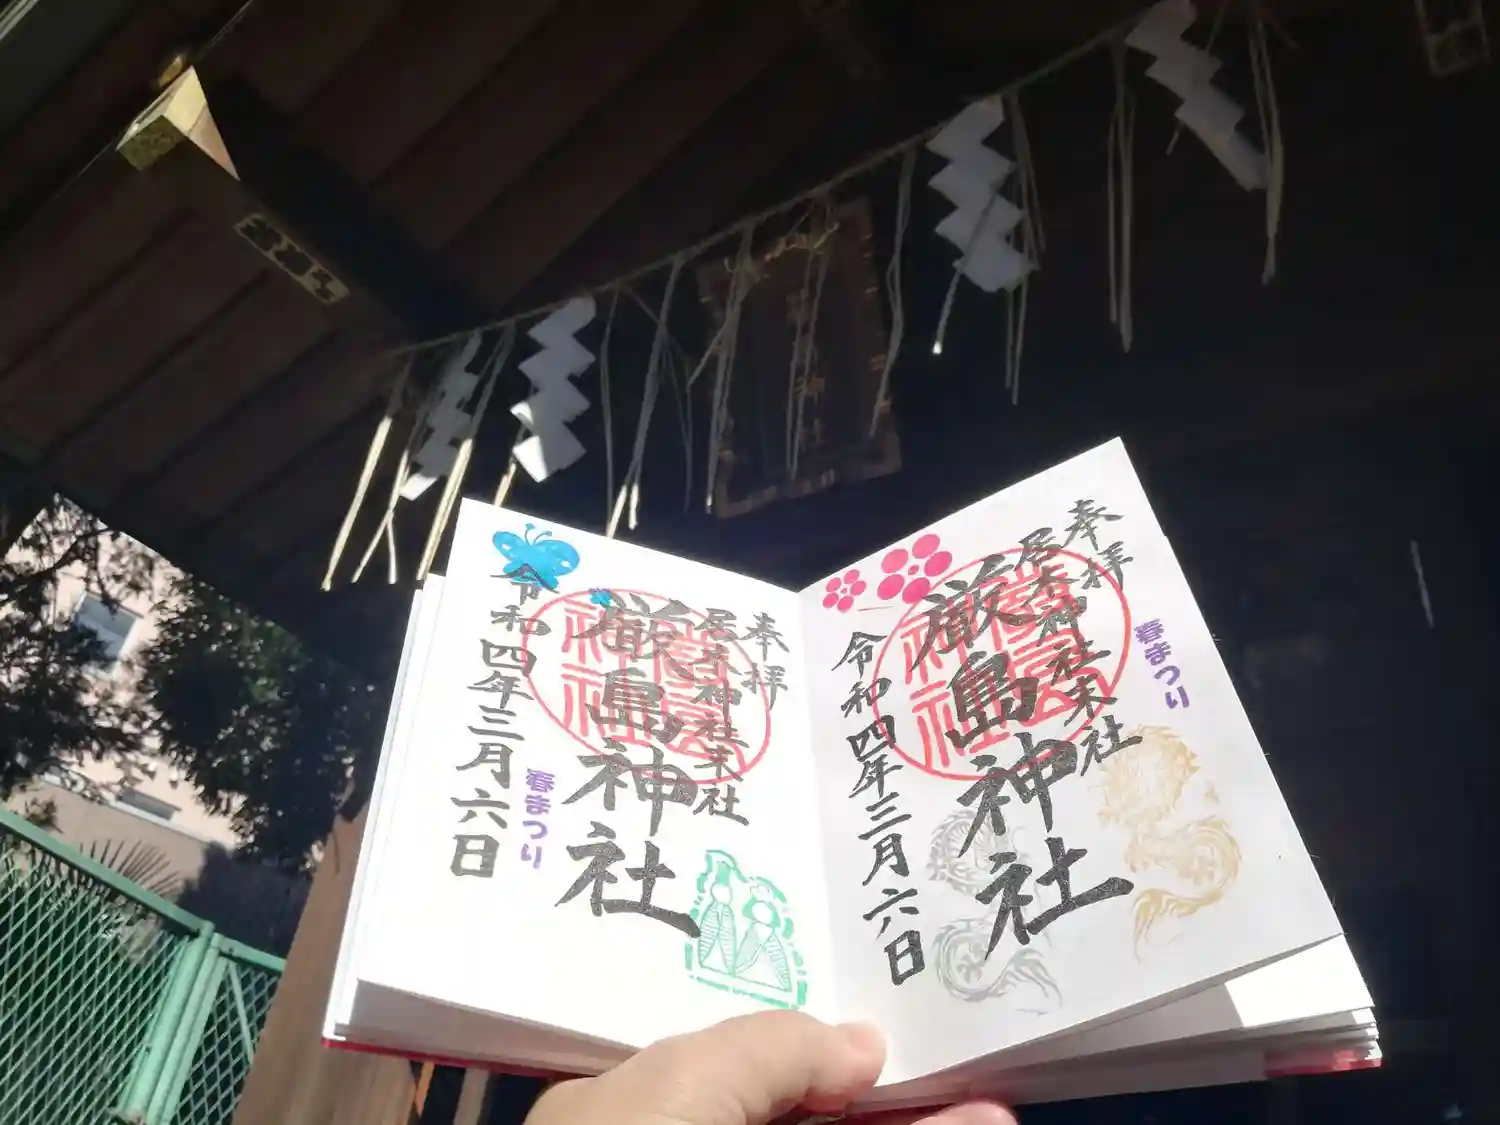 奉拝
居木神社末社
厳島神社
令和四年三月六日
春まつり
春まつり
奉拝
居木神社末社
厳島神社
令和四年三月六日